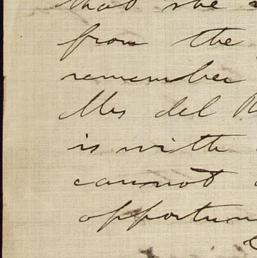 that she
from the
remember
Mrs del
is with
cannot
opportun